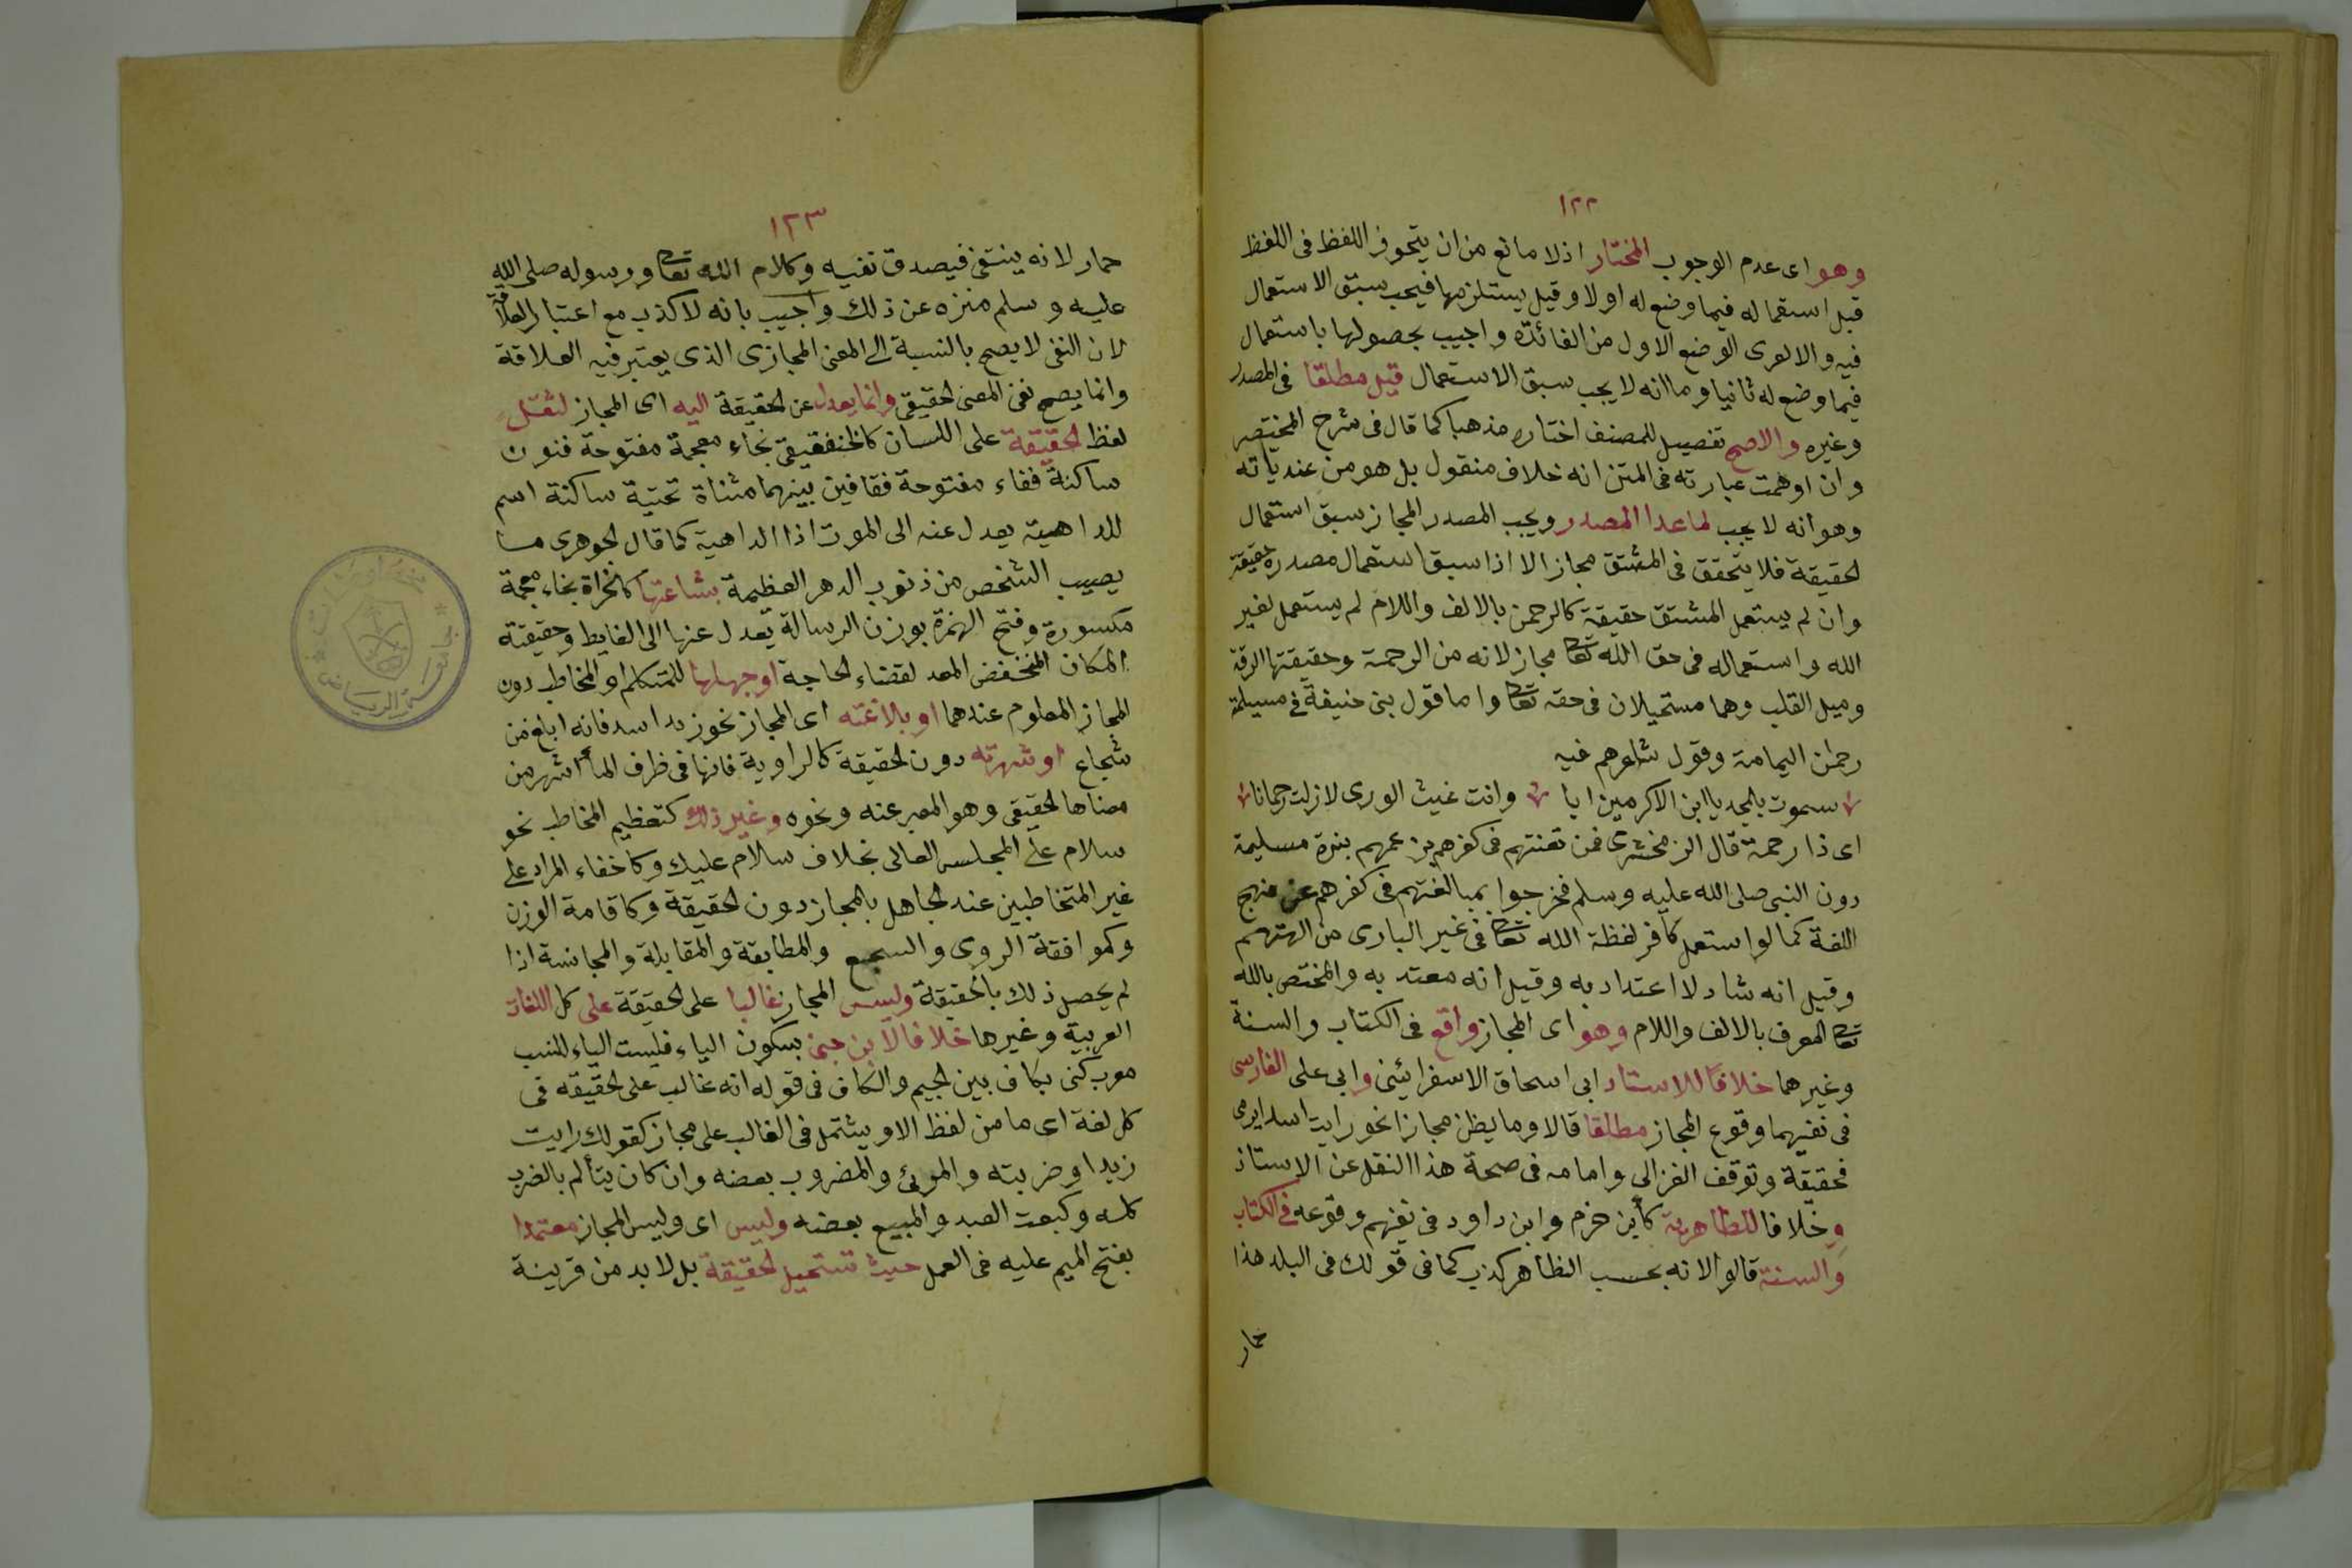 ١٢٢
وهو اى عدم الوجوب المختار اذ لا مانع من ان يتجوز اللفظ فى اللفظ
قبل استعماله فيما وضع له اولا وقيل يستلزمها فيجب سبق الاستعمال
فيه والا لعرى الوضع الاول من الفائدة واجيب بحصولها باستعمال
فيما وضع له ثانيا وما انه لا يجب سبق الاستعمال قيل مطلقا فى المصدر
وغيره والاصح تفصيل للمصنف اختاره مذهبا كما قال فى شرح المختصر
وان اوهمت عبارته فى المتن انه خلاف منقول بل هو من عندياته
وهو انه لا يجب لما عدا المصدر ويجب المصدر المجاز سبق استعمال
الحقيقة فلا يتحقق فى المشتق مجاز الا اذا سبق استعمال مصدره حقيقة
وان لم يستعمل المشتق حقيقة كالرحمن بالالف واللام لم يستعمل لغير
الله واستعماله فى حق الله تعا مجاز لانه من الرحمة وحقيقتها الرقة
وميل القلب وهما مستحيلان فى حقه تعا واما قول بنى حنيفة فى مسيلمة
رحمٰن اليمامة وقول شاعرهم فيه
سموت بالمجد يا ابن الاكرمين ابا وانت غيث الورى لازلت رحمانا
اى ذا رحمة قال الزمخشرى فمن تعنتهم فى كفرهم بزعمهم بنوة مسليمة
دون النبى صلى الله عليه وسلم فخرجوا بمبالغتهم فى كفرهم عن منهج
اللغة كما لو استعمل كافر لفظة الله تعا فى غير البارى من الهتهم
وقيل انه شاد لا اعتداد به وقيل انه معتد به والمختص بالله
تعا المعرف بالالف واللام وهو اى المجاز واقع فى الكتاب والسنة
وغيرهما خلافا للاستاد ابى اسحاق الاسفرائنى وابى على الفارسى
فى نفيهما وقوع المجاز مطلقا قالا وما يظن مجازا نحو رايت اسد ايرمى
فحقيقة وتوقف الغزالى وامامه فى صحة هذا النقل عن الاستاذ
وخلافا للظاهرية كأبن حزم وابن داود فى نفيهم وقوعه فى الكتاب
والسنة قالوا لانه بحسب الظاهر كذب كما فى قولك فى البلد هذا
حمار
١٢٣
حمار لانه ينتفى فيصدق نفيه وكلام الله تعا ورسوله صلى الله
عليه وسلم منزه عن ذلك واجيب بانه لا كذب مع اعتبار العلاقة
لان النفى لا يصح بالنسبة الى المعنى المجازى الذى يعتبر فيه العلاقة
وانما يصح نفى المعنى الحقيقى وانما يعدل عن الحقيقة اليه اى المجاز لثقل
لفظ الحقيقة على اللسان كالخنفقيق بخاء معجمة مفتوحة فنون
ساكنة ففاء مفتوحة فقافين بينهما مثناة تحتية ساكنة اسم
للداهية يعدل عنه الى الموت اذا الداهية كما قال الجوهرى ما
يصيب الشخص من ذنوب الدهر العظيمة بشاعتها كالخراة بخاء معجمة
مكسورة وفتح الهمزة بوزن الرسالة يعدل عنها الى الغايط وحقيقته
المكان المنخفض المعد لقضاء الحاجة او جهلها للمتكلم او المخاطب دون
المجاز المعلوم عندهما او بلاغته اى المجاز نحو زيد اسد فانه ابلغ من
شجاع او شهرته دون الحقيقة كالراوية فانها فى ظرف الماء اشهر من
معناها الحقيقى وهو المعبر عنه ونحوه وغير ذلك كتعظيم المخاطب نحو
سلام على المجلس العالى بخلاف سلام عليك وكاخفاء المراد على
غير المتخاطبين عند الجاهل بالمجاز دون الحقيقة وكاقامة الوزن
وكموافقة الروى والسجع والمطابقة والمقابلة والمجانسة اذا
لم يحصل ذلك بالحقيقة وليس المجاز غالبا على الحقيقة على كل اللغات
العربية وغيرها خلافا لابن جنى بسكون الياء فليست الياء للنسب
معرب كنى بكاف بين الجيم والكاف فى قوله انه غالب على الحقيقة فى
كل لغة اى ما من لفظ الا ويشتمل فى الغالب على مجاز كقولك رايت
زيدا وضربته والمرئ والمضروب بعضه وان كان يتألم بالضرب
كله وكبعت العبد والمبيع بعضه وليس اى وليس المجاز معتمدا
بفتح الميم عليه فى العمل حيث تستحيل الحقيقة بل لا بد من قرينة
جامعة الرياض